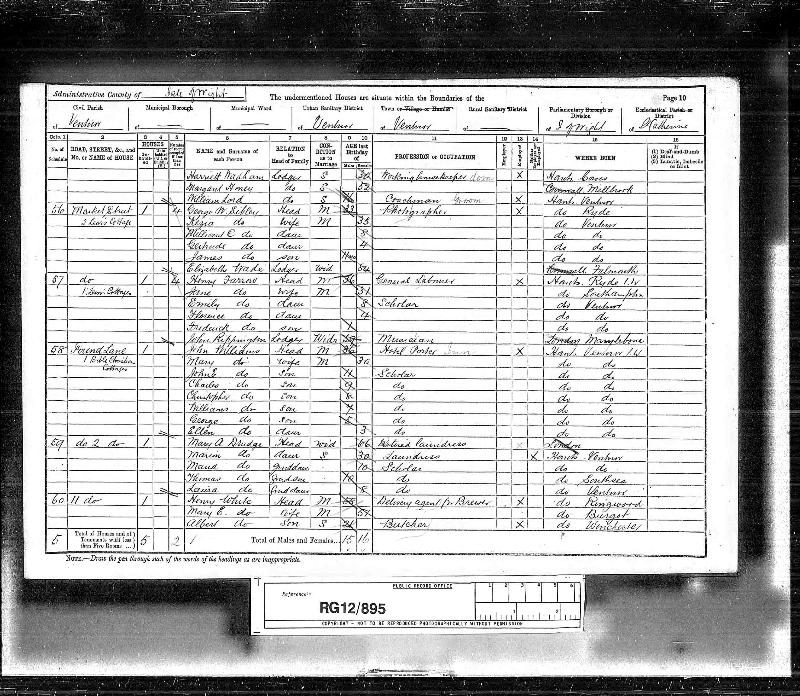 Administrative County of Isle of Wight
The undermentioned Houses are situate within the Boundaries of the
Page 10
Civil Parish
Municipal Borough
Municipal Ward
Urban Sanitary District
Town or Village or Hamlet
Rural Sanitary District
Parliamentary Borough or Division
Ecclesiastical Parish or District
of Ventnor
of
of
of Ventnor
of Ventnor
of
of I of Wight
of St Catherine
No. of Schedule
ROAD, STREET, &c., and No. or NAME of HOUSE
HOUSES
NAME and Surname of each Person
RELATION to Head of Family
CONDITION as to Marriage
AGE last Birthday of
PROFESSION or OCCUPATION
Employer
Employed
WHERE BORN
If (1) Deaf-and-Dumb (2) Blind (3) Lunatic, Imbecile or Idiot
Harriett Lodger S X Hants Cowes
Margaret Honey do S 52 Cornwall Millbrook
William Lord do S Coachman Groom X Hants Ventnor
56 Market Street 1 4 George W. Sibley Head M Photographer X do Ryde
do wife M 35 do Ventnor
do daur 8 do do
Gertrude do daur 4 do do
James do son do do
Elizabeth Lodger Wid 54 Cornwall Falmouth
57 do 1 4 Henry Farrow Head M General Labourer X Hants Ryde I.W
Jane do wife M 31 do Southampton
Emily do daur 8 Scholar do Ventnor
Florence do daur 4 do do
Frederick do son 1 do do
John Rippington Lodger Widr Musician London Marylebone
58 Lane 1 John Williams Head M Hotel Porter X Hants Ventnor I.W
1 Bible Christian Cottages Mary do wife M 30 do do
John E do son 11 Scholar do do
Charles do son 9 do do do
Christopher do son 8 do do do
William do son 7 do do do
George do son 5 do do do
Ellen do daur 3 do do
59 do 2 do 1 Mary A Drudge Head Wid 66 Retired Laundress London
do daur S 30 Laundress X Hants Ventnor
Maud do Granddaur 10 Scholar do do
Thomas do Grandson 10 do do Southsea
Laura do Granddaur 8 do do Ventnor
60 11 do 1 Henry White Head M Delivery agent for Brewer X do Ringwood
Mary E. do wife M 51 do
Albert do son S 21 Butcher X do Winchester
5 Total of Houses and of Tenements with less than Five Rooms 5 2 1 Total of Males and Females 15 16
NOTE.—Draw the pen through such of the words of the headings as are inappropriate.
PUBLIC RECORD OFFICE
Reference:-
RG12/895
COPYRIGHT - NOT TO BE REPRODUCED PHOTOGRAPHICALLY WITHOUT PERMISSION